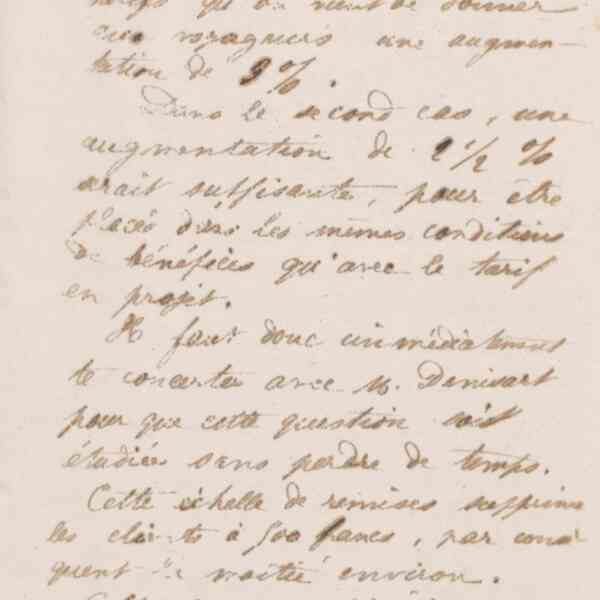 qu'on vient de donner
aux voyageurs une augmen-
tation de 3%.
Dans le second cas, une
augmentation de 2 1/2 %
serait suffisante, pour être
placés dans les mêmes conditions
de bénéfices qu'avec le tarif
en projet.
Il faut donc immédiatement
te concerter avec M. Denisart
pour que cette question soit
étudiée sans perdre de temps.
Cette échelle de remises supprime
les clients à 500 francs, par consé
quent la moitié environ.